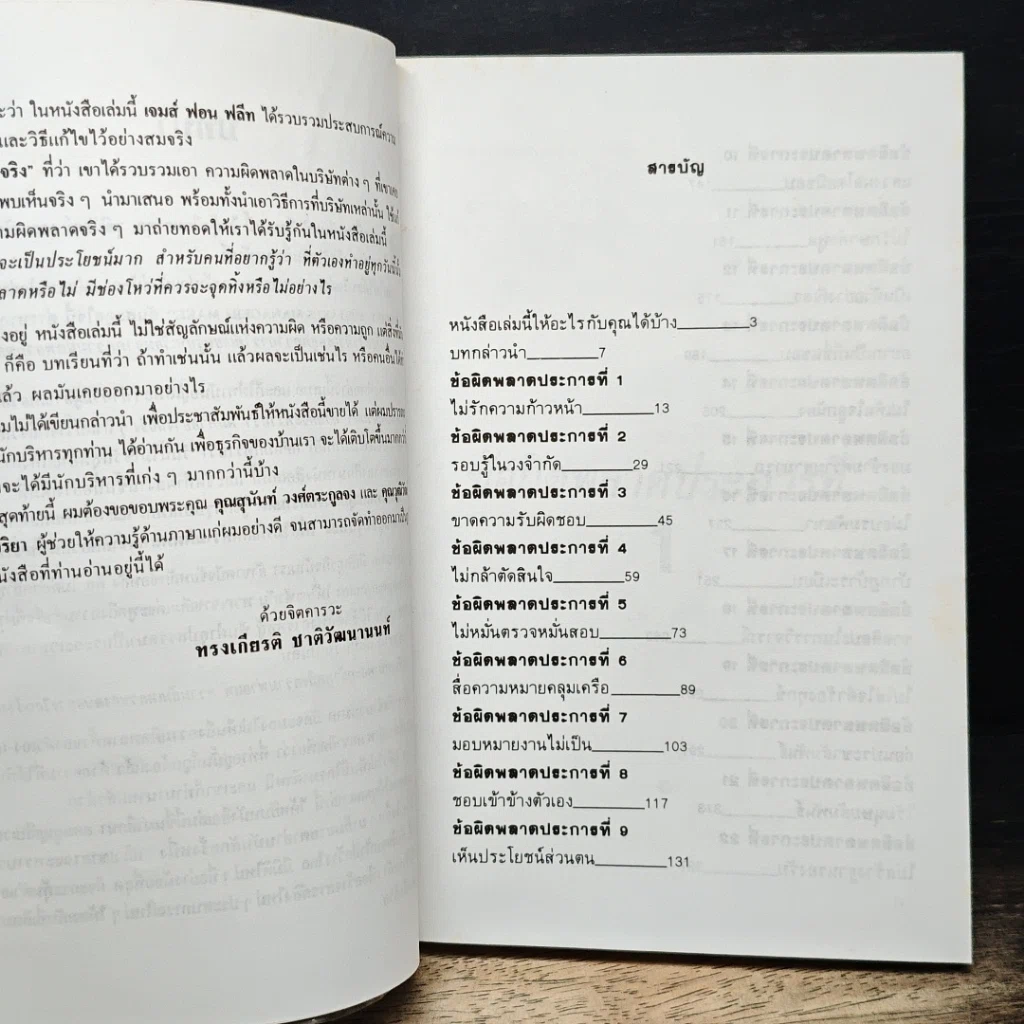 ะว่า ในหนังสือเล่มนี้ เจมส์ ฟอน ฟลีท ได้รวบรวมประสบการณ์ความ
และวิธีแก้ไขไว้อย่างสมจริง
จริง" ที่ว่า เขาได้รวบรวมเอา ความผิดพลาดในบริษัทต่าง ๆ ที่เขาเคย
พบเห็นจริง ๆ นำมาเสนอ พร้อมทั้งนำเอาวิธีการที่บริษัทเหล่านั้น
ามผิดพลาดจริง ๆ มาถ่ายทอดให้เราได้รับรู้กันในหนังสือเล่มนี้
จะเป็นประโยชน์มาก สำหรับคนที่อยากรู้ว่า ที่ตัวเองทำอยู่ทุกวันนี้
ลาดหรือไม่ มีช่องโหว่ที่ควรจะจุดทิ้งหรือไม่อย่างไร
งอยู่ หนังสือเล่มนี้ ไม่ใช่สัญลักษณ์แห่งความผิด หรือความถูก แต่สิ่งที่
ก็คือ บทเรียนที่ว่า ถ้าทำเช่นนั้น แล้วผลจะเป็นเช่นไร หรือคนอื่น
แล้ว ผลมันเคยออกมาอย่างไร
มไม่ได้เขียนกล่าวนำ เพื่อประชาสัมพันธ์ให้หนังสือนี้ขายได้ แต่ผม
นักบริหารทุกท่าน ได้อ่านกัน เพื่อธุรกิจของบ้านเรา จะได้เติบโตขึ้นมากกว่า
จะได้มีนักบริหารที่เก่ง ๆ มากกว่านี้บ้าง
สุดท้ายนี้ ผมต้องขอขอบพระคุณ คุณสุนันท์ วงศ์ตระกูลจง และ
ริยา ผู้ช่วยให้ความรู้ด้านภาษาแก่ผมอย่างดี จนสามารถจัดทำออกมา
นังสือที่ท่านอ่านอยู่นี้ได้
ด้วยจิตคารวะ
ทรงเกียรติ ชาติวัฒนานนท์
สารบัญ
หนังสือเล่มนี้ให้อะไรกับคุณได้บ้าง________3
บทกล่าวนำ________7
ข้อผิดพลาดประการที่ 1
ไม่รักความก้าวหน้า________13
ข้อผิดพลาดประการที่ 2
รอบรู้ในวงจำกัด________29
ข้อผิดพลาดประการที่ 3
ขาดความรับผิดชอบ________45
ข้อผิดพลาดประการที่ 4
ไม่กล้าตัดสินใจ________59
ข้อผิดพลาดประการที่ 5
ไม่หมั่นตรวจหมั่นสอบ________73
ข้อผิดพลาดประการที่ 6
สื่อความหมายคลุมเครือ________89
ข้อผิดพลาดประการที่ 7
มอบหมายงานไม่เป็น________103
ข้อผิดพลาดประการที่ 8
ชอบเข้าข้างตัวเอง________117
ข้อผิดพลาดประการที่ 9
เห็นประโยชน์ส่วนตน________131